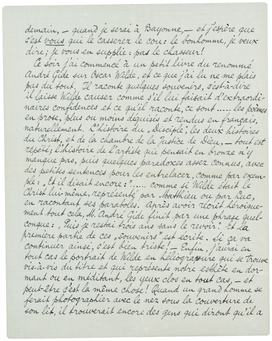 demain, — quand je serai à Bayonne, — et j'espère que
c'est vous qui le casserez le cou: le bonhomme, je veux
dire; je vous en supplie: pas le chasseur!
Ce soir j'ai commencé à un petit livre du renommé
André Gide sur Oscar Wilde, et ce que j'ai lu ne me plaît
pas du tout. Il raconte quelques souvenirs, c'est-à-dire
il laisse Wilde causer comme s'il lui faisait d'extraordi-
naires confidences et ce qu'il raconte, ce sont les poèmes
en prose, plus ou moins déguisés et rendus en français,
naturellement. L'histoire du "disciple", les deux histoires
du Christ, et de la chambre de la Justice de Dieu, — tout est
répété; l'histoire de l'artiste qui pensait en bronze n'y
manque pas, puis quelques paradoxes assez connus, avec
des petites sentences pour les entrelacer, comme par exem-
ple: "Et il disait encore: ..... comme si Wilde était le
Christ lui-même, représenté par Matthieu ou par Luc,
en racontant ses paraboles. Après avoir récité sérieuse-
ment tout cela, M. André Gide finit par une phrase quel-
conque: "Puis je restai trois ans sans le revoir." Et la
première partie de ces "souvenirs" est écrite. Si ça va
continuer ainsi, c'est bien triste! — Enfin, j'aurai en
tout cas le portrait de Wilde en héliogravure qui se trouve
vis-à-vis du titre et qui représente notre esthète en dor-
mant ou en méditant, les yeux clos en tout cas, — et
peut-être c'est la même chose! Quand un grand homme se
ferait photographier avec le nez sous la couverture de
son lit, il trouverait encore des gens qui diront qu'il a